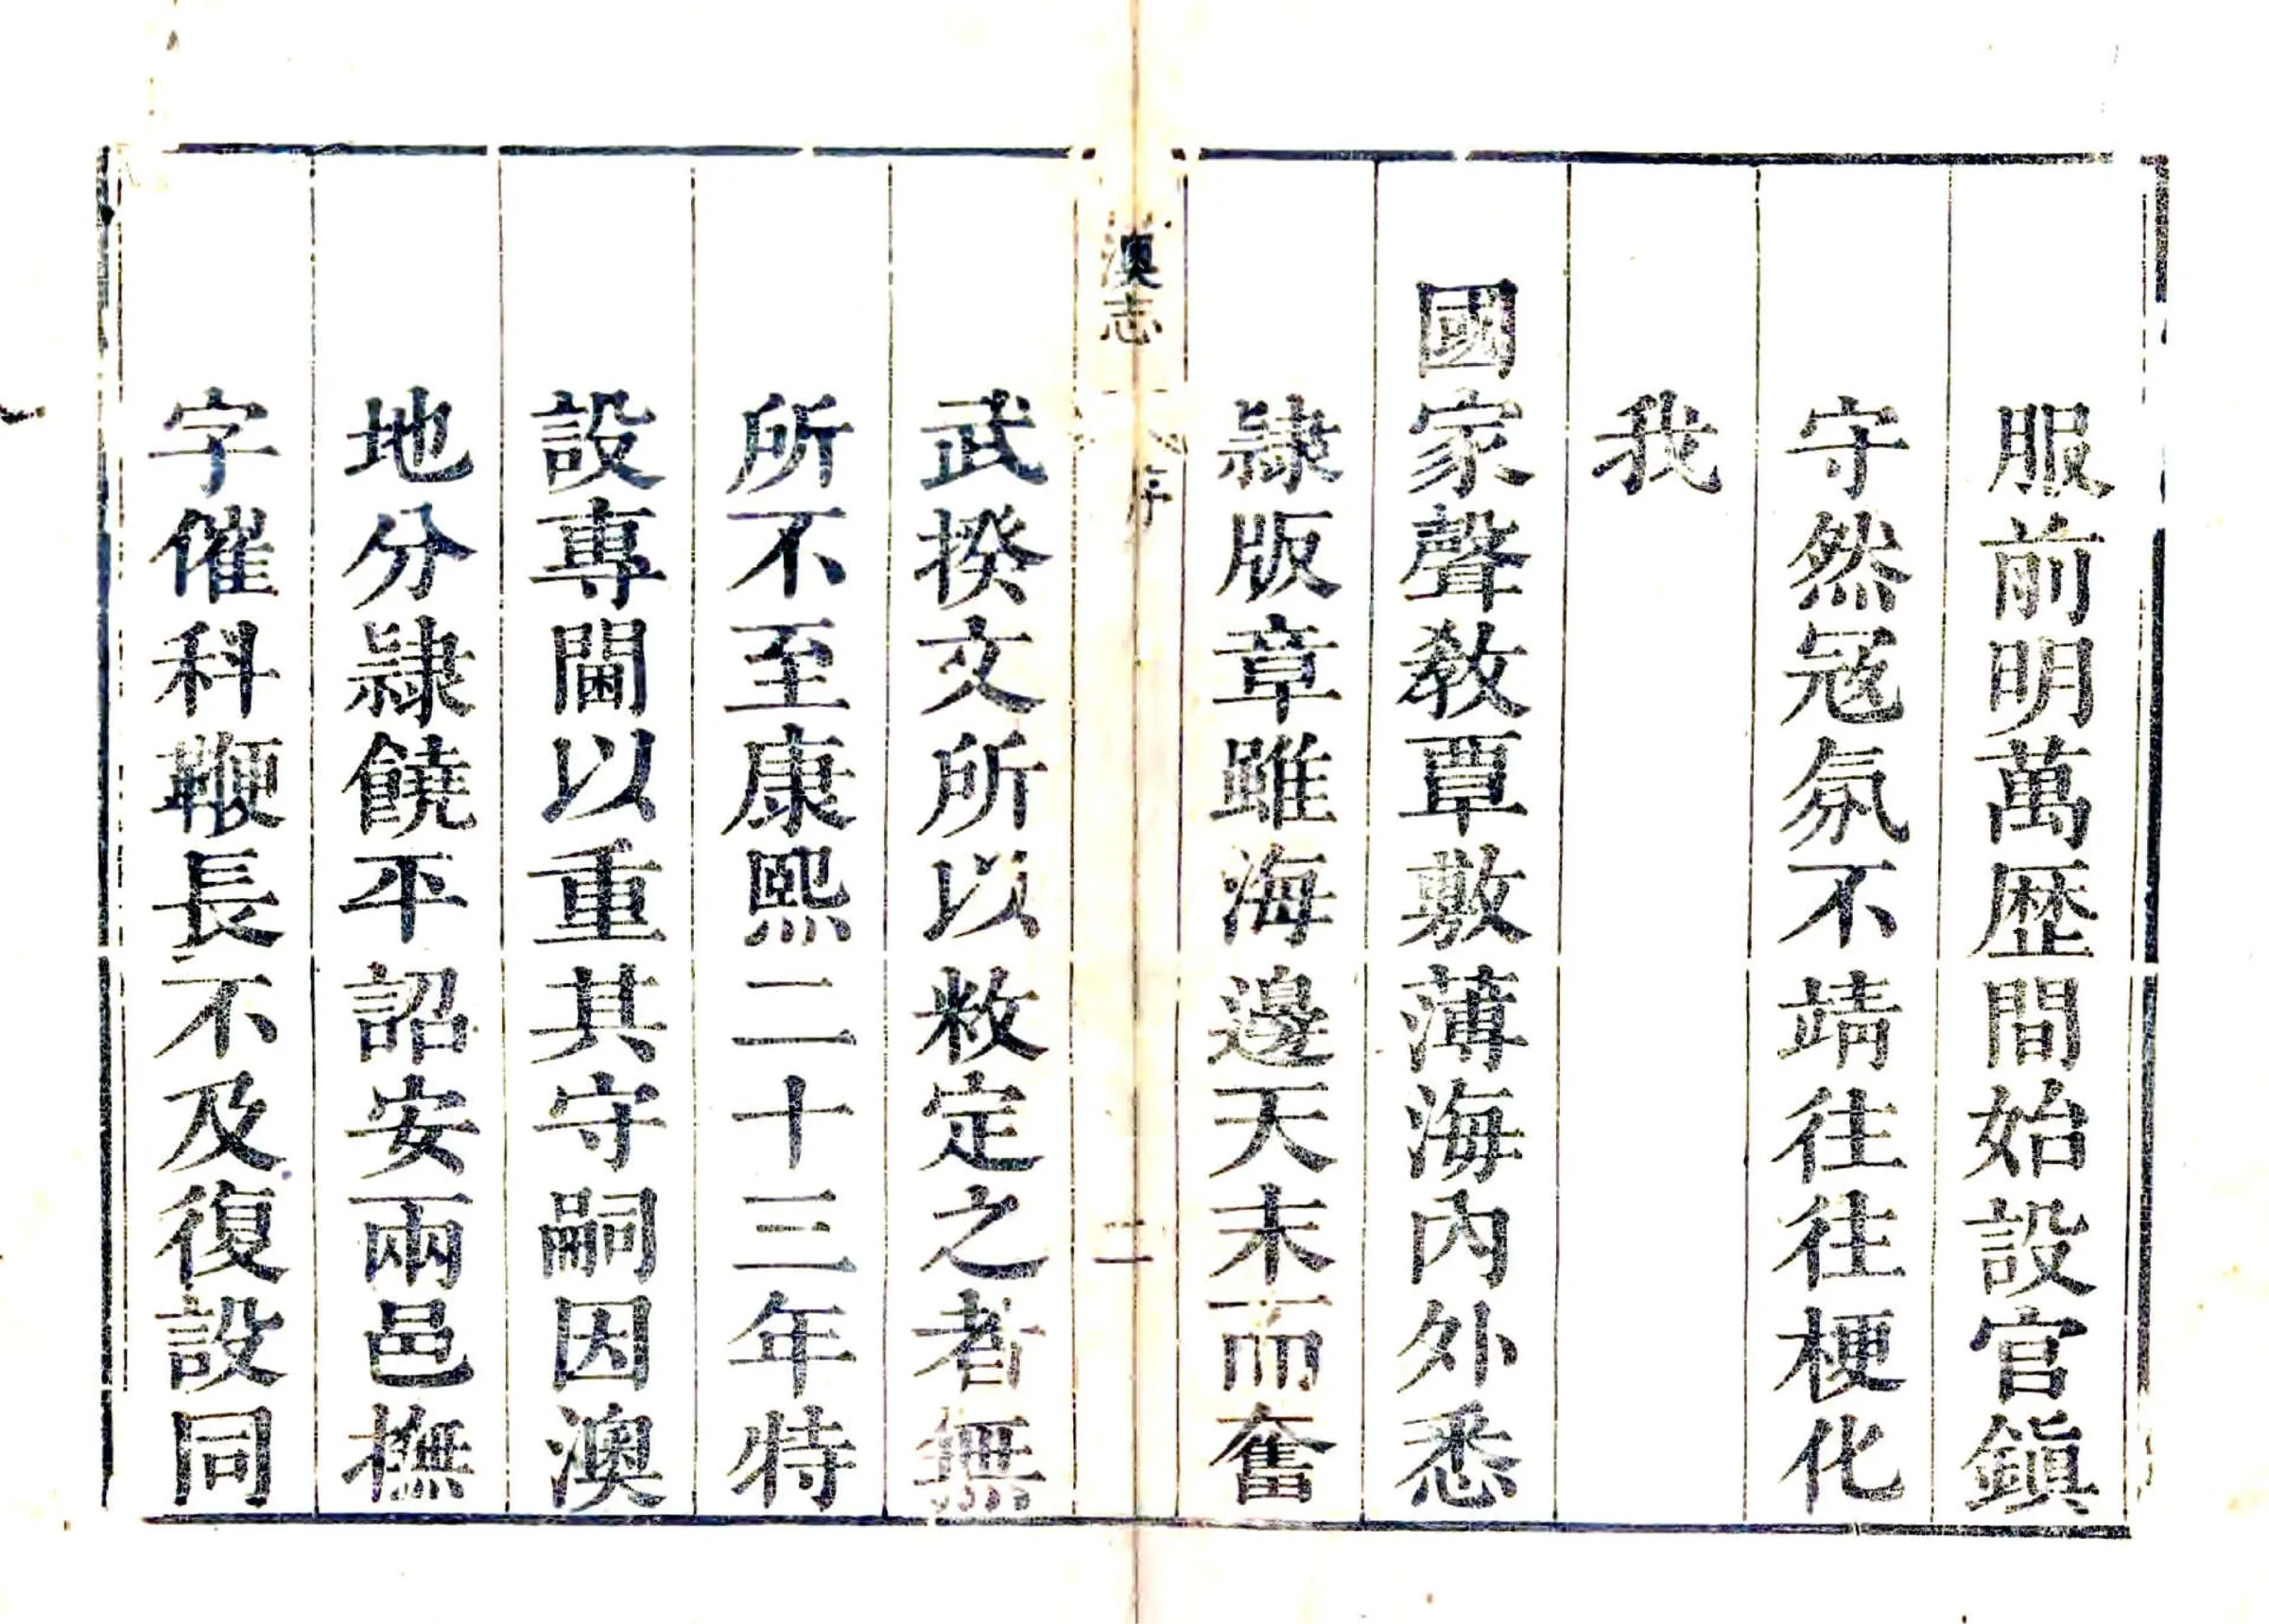 服前明萬歴間始設官鎭
守然冦氛不靖往往梗化
我
國家聲敎覃敷薄海內外悉
隷版章雖海邊天末而奮
澳志
序
二
武揆文所以敉定之者無
所不至康熙二十三年特
設專閫以重其守嗣因澳
地分隷饒平詔安兩邑撫
字催科鞭長不及復設同